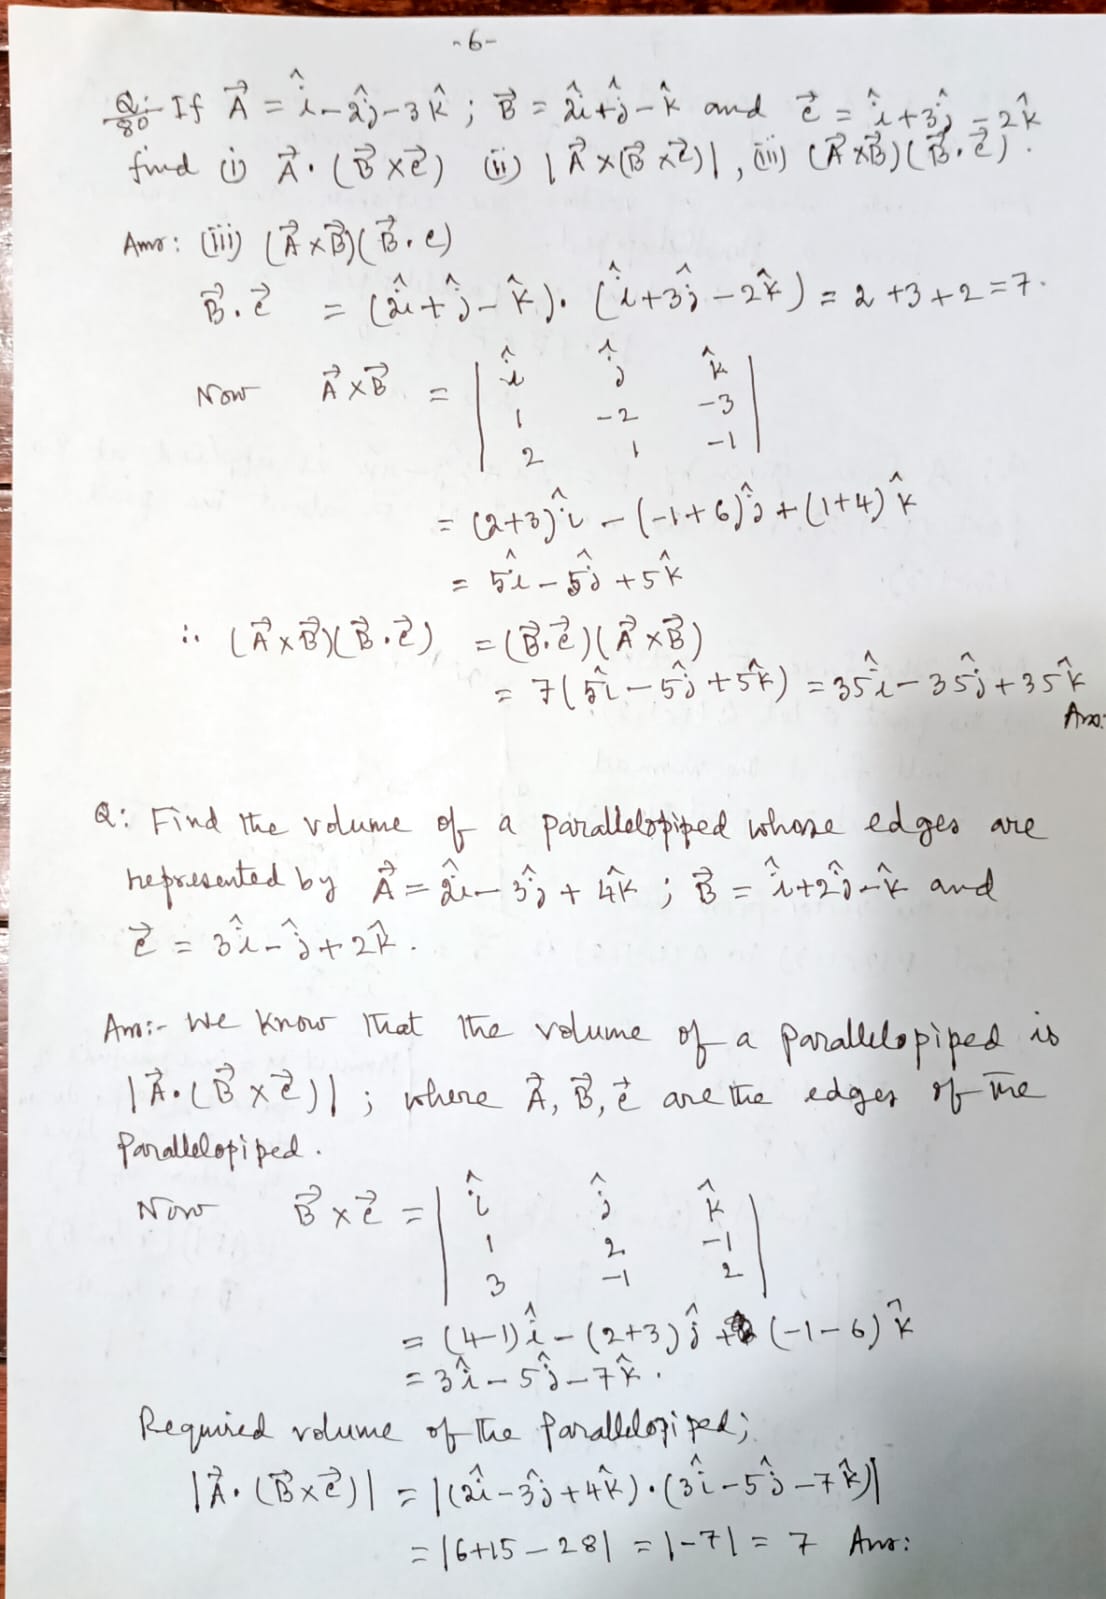 -6-
Q:- If A⃗ = î - 2ĵ - 3k̂ ; B⃗ = 2î + ĵ - k̂ and c⃗ = î + 3ĵ - 2k̂
80
find (i) A⃗ · (B⃗ × c⃗) (ii) |A⃗ × (B⃗ × c⃗)|, (iii) (A⃗ × B⃗)(B⃗ · c⃗).
Ans: (iii) (A⃗ × B⃗)(B⃗ · c)
B⃗ · c⃗ = (2î + ĵ - k̂) · (î + 3ĵ - 2k̂) = 2 + 3 + 2 = 7.
Now A⃗ × B⃗ = | î ĵ k̂ |
| 1 -2 -3 |
| 2 1 -1 |
= (2+3)î - (-1+6)ĵ + (1+4)k̂
= 5î - 5ĵ + 5k̂
∴ (A⃗ × B⃗)(B⃗ · c⃗) = (B⃗ · c⃗)(A⃗ × B⃗)
= 7(5î - 5ĵ + 5k̂) = 35î - 35ĵ + 35k̂
Ans:
Q: Find the volume of a parallelopiped whose edges are
represented by A⃗ = 2î - 3ĵ + 4k̂ ; B⃗ = î + 2ĵ - k̂ and
c⃗ = 3î - ĵ + 2k̂ .
Ans:- We know that the volume of a parallelopiped is
|A⃗ · (B⃗ × c⃗)| ; where A⃗, B⃗, c⃗ are the edges of the
parallelopiped.
Now B⃗ × c⃗ = | î ĵ k̂ |
| 1 2 -1 |
| 3 -1 2 |
= (4-1)î - (2+3)ĵ + (-1-6)k̂
= 3î - 5ĵ - 7k̂ .
Required volume of the parallelopiped;
|A⃗ · (B⃗ × c⃗)| = |(2î - 3ĵ + 4k̂) · (3î - 5ĵ - 7k̂)|
= |6+15-28| = |-7| = 7 Ans: